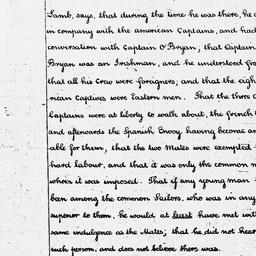 Lamb, says, that during the time he was there, he
in company with the American Captains, and had
conversation with Captain O'Bryan; that Captain
Bryan was an Irishman, and he understood
that all his Crew were foreigners; and that the
rican Captives were Eastern men. That the three
Captains were at liberty to walk about, the french
and afterwards the Spanish Envoy having become
able for them, that the two Mates were exempted
hard labour, and that it was only the common
whom it was imposed. That if any young man
been among the common Sailors, who was in any
superior to them, he would at least have met
same indulgence as the Mates; that he did not hear
such person, and does not believe there was.